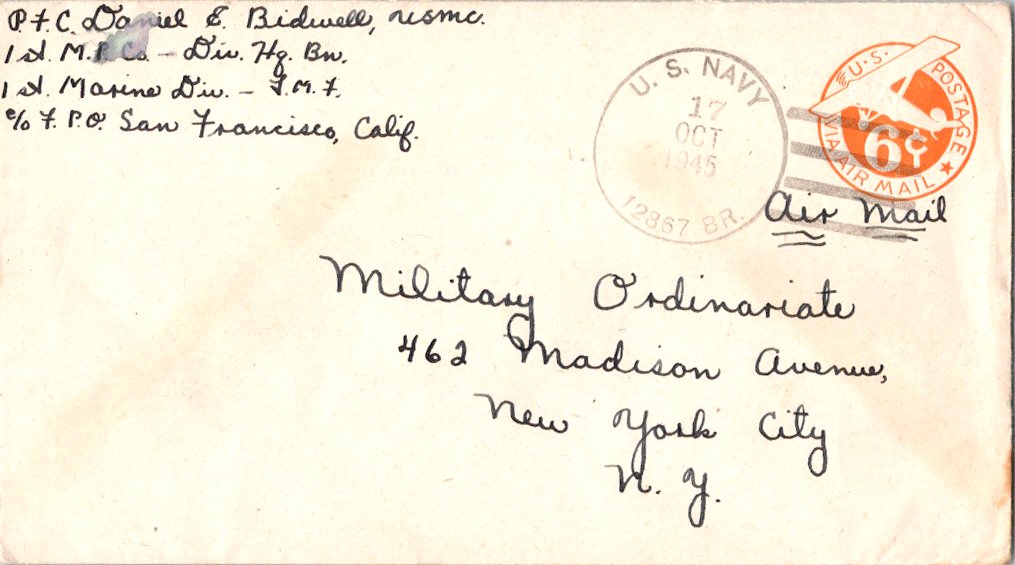 P.F.C. Daniel E. Bidwell, USMC.
1st. M.P. Co. – Div. Hq. Bn.
1st. Marine Div. – F.M.F.
c/o F.P.O. San Francisco, Calif.
U. S. NAVY
17
OCT
1945
12867 BR.
U.S. POSTAGE
6¢
VIA AIR MAIL
Air Mail
Military Ordinariate
462 Madison Avenue,
New York City
N. Y.